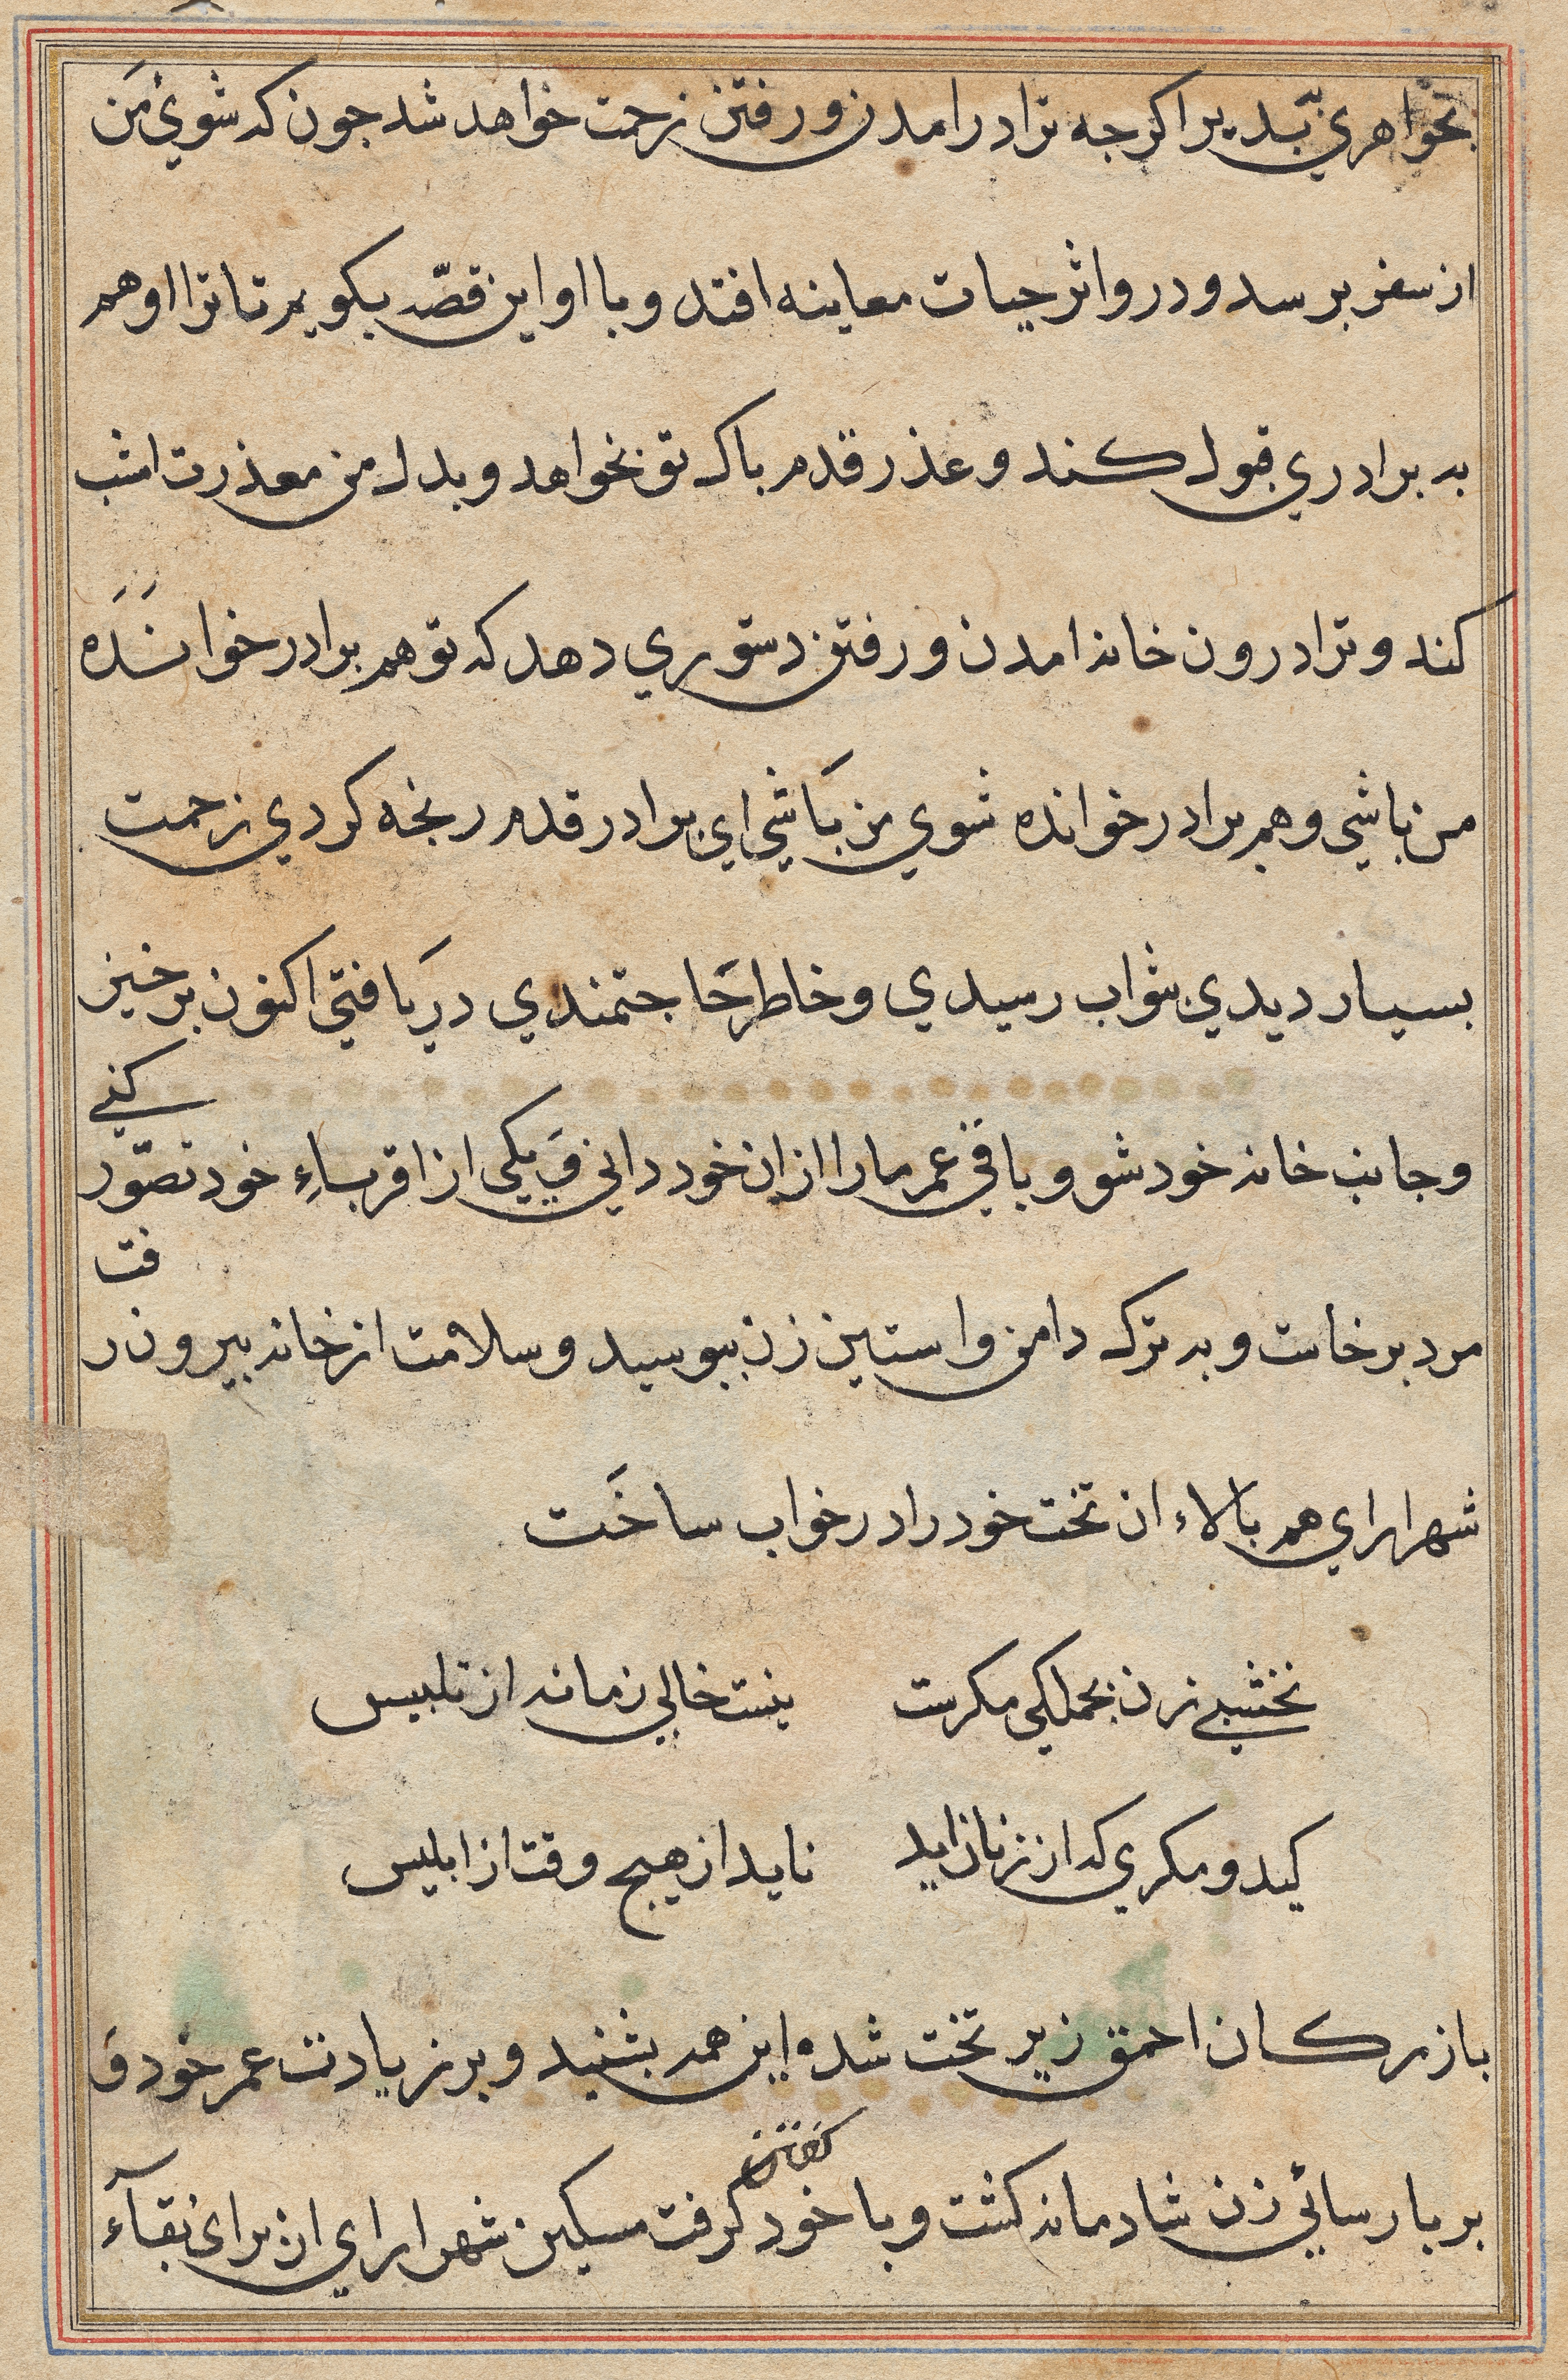 بخواهري بپديرا كرجه ترا درامدن و رفتن زحمت خواهد شد جون كه شوئ من
از سفر برسد و درو اثر حيات معاينه افتد و با او اين قصّه بكويم تا ترا او هم
به برادري قبول كند و عذر قدم باك تو بخواهد و بدل من معذرت امشب
كند و ترا درون خانه امدن و رفتن دستوري دهد كه تو هم برادر خوانَدَه
من باشي و هم برادر خوانده شوي من بَاشي اي برادر قدم رنجه كردي زحمت
بسيار ديدي بثواب رسيدي و خاطر حَاجتمندي دريَافتي اكنون برخيز
و جانب خانه خود شو و باقي عمر ما را از ان خود داني و يكي از اقرباءِ خود تصّور كني
مرد برخاست و به ترك دامن و استين زن ببوسيد و سلامت از خانه بيرون رفت
شهراراي همه بالاء ان تخت خود را در خواب ساخَت
نخشبي زن بجملكي مكرست نيست خالي زمانه از تلبيس
كيد و مكري كه از زنان ايد نايد از هيج وقت از ابليس
بازركان احمق زير تخت شده اين همه بشنيد و بر زيادت عمر خود و
بر بارسائي زن شادمانه كشت و با خود كفتن كرفت مسكين شهراراي ان براى بقآء